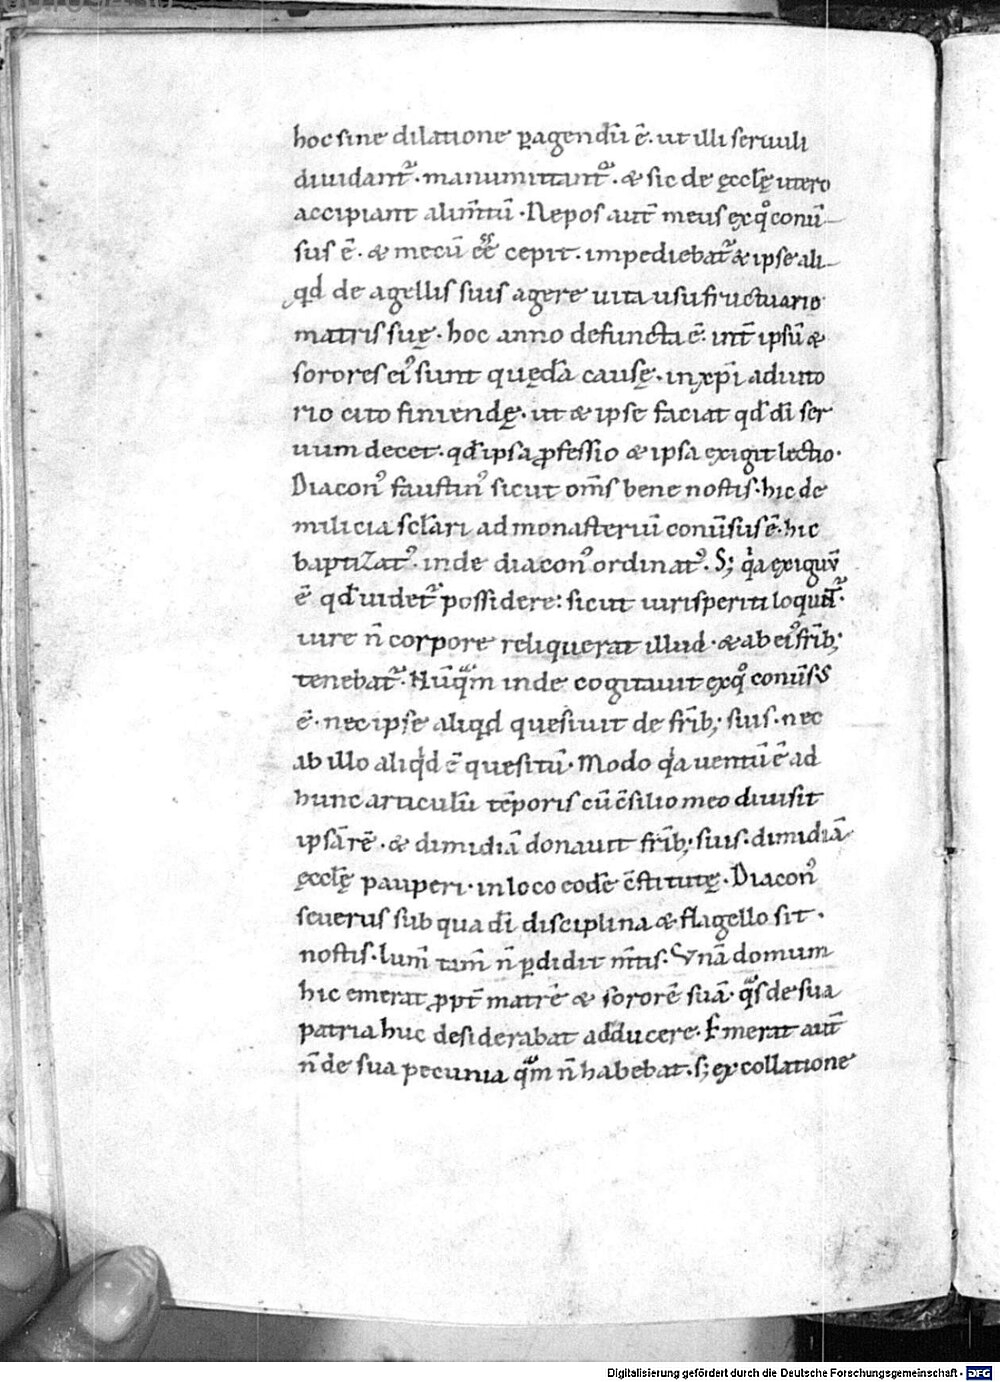 hoc sine dilatione ꝑagendū ē. ut illi seruuli
diuidant᷑. manumittant᷑. & sic de ęcclę utero
accipiant alim̄tū. Nepos aut̄ meus ex qͦ conū
sus ē. & mecū eē cepit. impediebat᷑ & ipse ali
qd de agellis suis agere uita usufructuario
matris suę. hoc anno defuncta ē. int̄ ipsū &
sorores ei᷒ sunt quędā causę. in xp̄i adiuto
rio cito finiendę. ut & ipse faciat qd̄ dī ser
uum decet. qd̄ ipsa ꝓfessio & ipsa exigit lectio.
Diacon᷒ faustin᷒ sicut om̄s bene nostis. hic de
milicia sclāri ad monasteriū conūsus ē. hic
baptizat᷒. inde diacon᷒ ordinat᷒. S; qͥa exiguū
ē qd̄ uidet᷑ possidere: sicut iurisperiti loqunt᷑.
iure n̄ corpore reliquerat illud. & ab ei᷒ fr̄ib;
tenebat᷑. Nūqͣm inde cogitauit ex qͦ conūsus
ē. nec ipse aliqd quesiuit de fr̄ib; suis. nec
ab illo aliqͥd ē quesitū. Modo qͥa uentū ē ad
hunc articulū tēporis cū c̄silio meo diuisit
ipsā rē. & dimidiā donauit fr̄ib; suis. dimidiā
ęcclę pauperi. in loco eodē c̄stitutę. Diacon᷒
seuerus sub qua dī disciplina & flagello sit.
nostis. lum̄ tam̄ n̄ ꝑdidit m̄tis. Vnā domum
hic emerat ꝓpt̄ matrē & sororē suā. qͣs de sua
patria huc desiderabat adducere. Emerat aut̄
n̄ de sua pecunia qͣm n̄ habebat. s; ex collatione
Digitalisierung gefördert durch die Deutsche Forschungsgemeinschaft - DFG